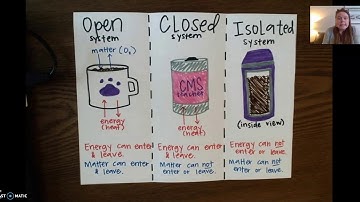 Open
system
matter (O₂)
energy
(heat)
Energy can enter
& leave.
Matter can enter
& leave.
Closed
system
CMS
teacher
energy
(heat)
Energy can enter
& leave.
Matter can not
enter or leave.
Isolated
system
(inside view)
Energy can not
enter or leave.
Matter can not
enter or leave.
MATIC